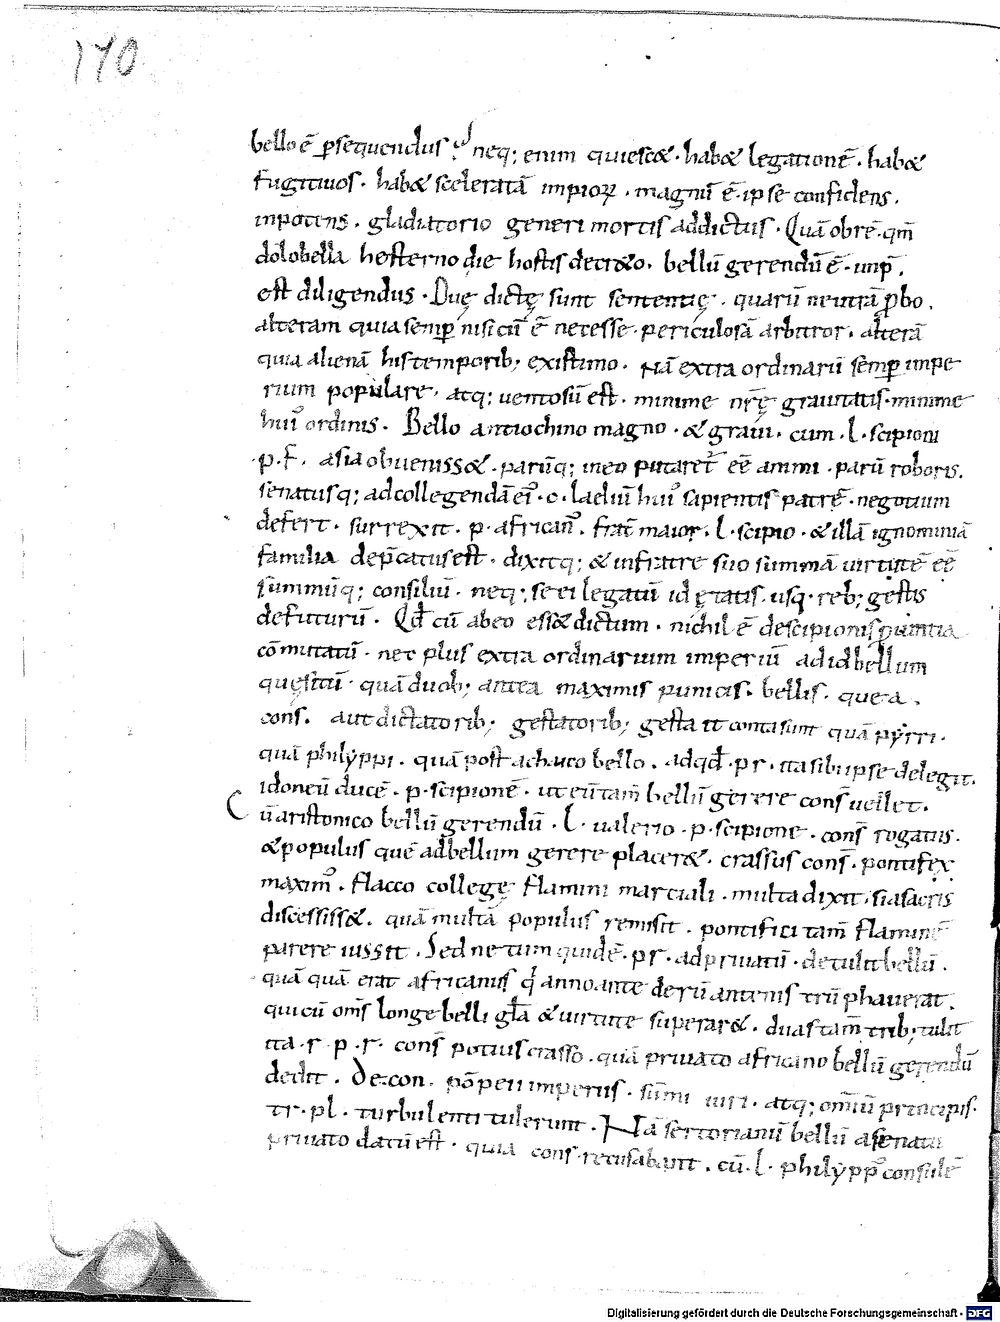 170
bello ē ꝑsequendus neq; enim quiesc&. hab& legationē. hab&
fugitiuos. hab& sceleratā impioꝝ. magnū ē. ipse confidens.
inpotens. gladiatorio generi mortis addictus. Quā obrē. qm̄
dolobella hosterno die hostis decr&o. bellū gerendū ē. imp̄.
est diligendus. Duę dictę sunt sententię. quarū neutrā ꝓbo.
alteram quia semꝑ nisi cū ē necesse. periculosā arbitror. alterā
quia alienā his temporib; existimo. Nā extra ordinariū semꝑ impe
rium populare. atq; uentosū est. minime nr̄ę grauitatis. minime
hui' ordinis. Bello antiochino magno. & graui. cum. l. scipioni
.p. f. asia obueniss&. parūq; in eo putaret' eē animi. parū roboris.
senatusq; ad collegendā ei'. c. laeliū hui' sapientis patrē. negotium
defert. surrexit. p. african'. frat̄ maior. l. scipio. & illā ignominiā
familia dep̄catus est. dixitq; & infratre suo summā uirtutē eē
summūq; consiliū. neq; se ei legatū id ętatis. usq. reb; gestis
defuturū. Qd̄ cū abeo ess& dictum. nichil ē descipionis ꝓuintia
cōmutatū. nec plus extra ordinarium imperiū ad id bellum
quęsitū. quā duob; antea maximis punicis. bellis. que a.
cons. aut dictatorib; gestatorib; gesta
quā pyrri.
quā philyppi. quā post achaico bello. adqd̄. pr. ita sibi ipse delegit.
idoneū ducē. p. scipionē. ut eū tam̄ bellū gerere cons̄ uellet.
C ū aristonico bellū gerendū. l. ualerio. p. scipione. cons̄ rogatus.
& populus quē ad bellum gerere placer&. crassus cons̄. pontifex
maxim'. flacco collegę flamini marciali. multa dixit. si a sacris
discessiss&. quā multā populus remisit. pontifici tam̄ flaminē
parere iussit. Sed ne tum quidē. pr. ad priuatū. detulit bellū.
quā quā erat africanus q̄ anno ante de
qui cū om̄s longe belli gl̄a & uirtute superar&. duas tam̄ trib; tulit
ita. r. p. r. cons̄ potius crasso. quā priuato africano bellū gerendū
dedit. De.con. pōpeii imperiis. sūmi uiri. atq; omiū principis.
tr. pl. turbulenti tulerunt. Nā sertorianū bellū asenatu
priuato datū est. quia cons. recusabant. cū. l. philypp' consulē
Digitalisierung gefördert durch die Deutsche Forschungsgemeinschaft - DFG